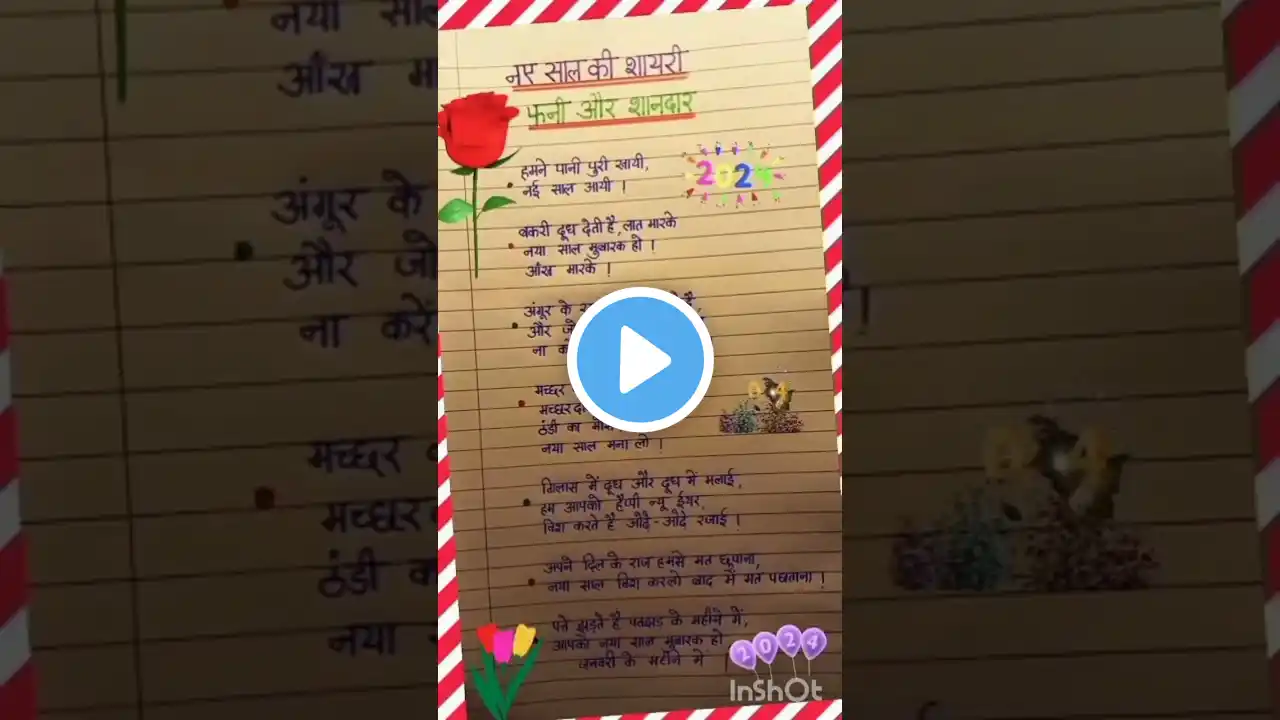 नए साल की शायरी
फनी और शानदार
हमने पानी पुरी खायी,
नई साल आयी ।
2024
बकरी दूध देती है, लात मारके
नया साल मुबारक हो ।
आँख मारके ।
अंगूर के है,
और जो
ना करें
मच्छर
मच्छरदा
ठंडी का
नया साल मना लो ।
गिलास में दूध और दूध में मलाई,
हम आपको हैप्पी न्यू ईयर,
विश करते है ओढ़े-ओढ़े रजाई ।
अपने दिल के राज हमसे मत छुपाना,
नया साल विश करलो बाद में मत पछताना ।
पत्ते झड़ते है पतझड़ के महीने में,
आपको नया साल मुबारक हो
जनवरी के महीने में ।
2024
InShOt